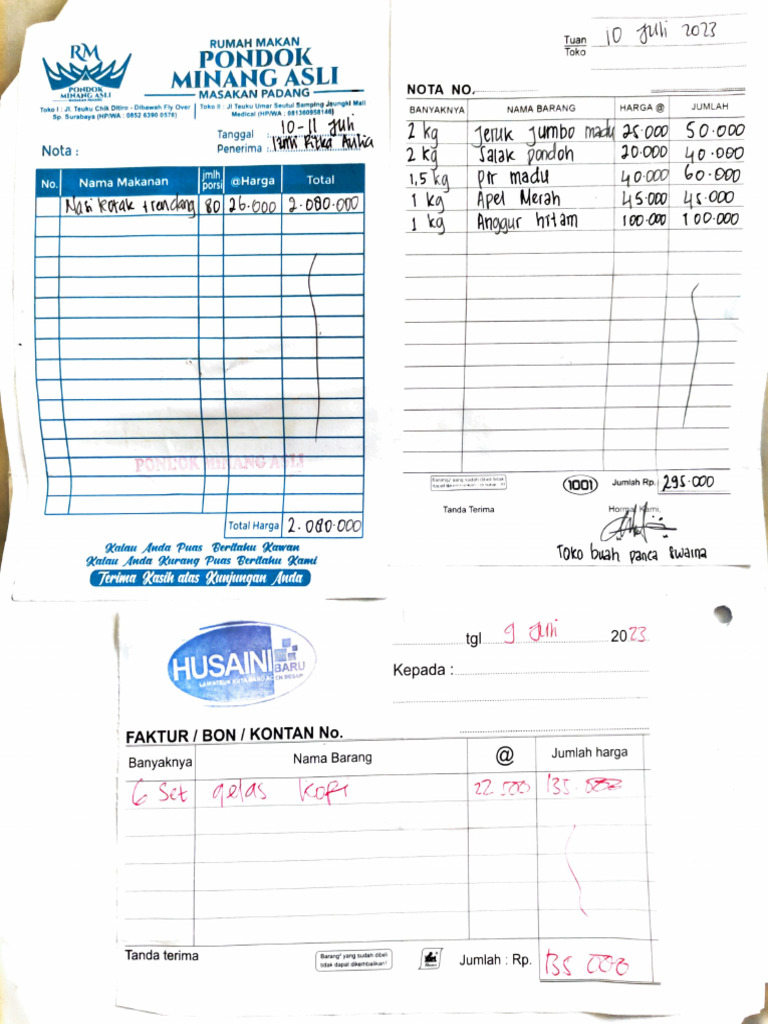 RM
PONDOK
MINANG ASLI
MASAKAN PADANG
RUMAH MAKAN
PONDOK
MINANG ASLI
MASAKAN PADANG
Toko I : Jl. Teuku Chik Ditiro - Dibawah Fly Over
Sp. Surabaya (HP/WA : 0852 6390 0576)
Toko II : Jl Teuku Umar Seutui Samping Jeungki Mall
Medical (HP/WA : 081360958146)
Tanggal : 10-11 Juli
Nota : Penerima :
No. Nama Makanan jmlh porsi @Harga Total
Nasi kotak + rendang 80 26.000 2.080.000
PONDOK MINANG ASLI
Total Harga 2.080.000
Kalau Anda Puas Beritahu Kawan
Kalau Anda Kurang Puas Beritahu Kami
Terima Kasih atas Kunjungan Anda
10 Juli 2023
Tuan
Toko
NOTA NO.
BANYAKNYA NAMA BARANG HARGA @ JUMLAH
2 kg Jeruk jumbo madu 25.000 50.000
2 kg Salak pondoh 20.000 40.000
1,5 kg pir madu 40.000 60.000
1 kg Apel Merah 45.000 45.000
1 kg Anggur hitam 100.000 100.000
1001 Jumlah Rp. 295.000
Tanda Terima Hormat Kami,
Toko buah panca
HUSAINI
BARU
tgl 9 Juli 2023
Kepada :
FAKTUR / BON / KONTAN No.
Banyaknya Nama Barang @ Jumlah harga
6 Set gelas kopi 22.500 135.000
Tanda terima
Barang² yang sudah dibeli
tidak dapat dikembalikan!
Jumlah : Rp. 135 000